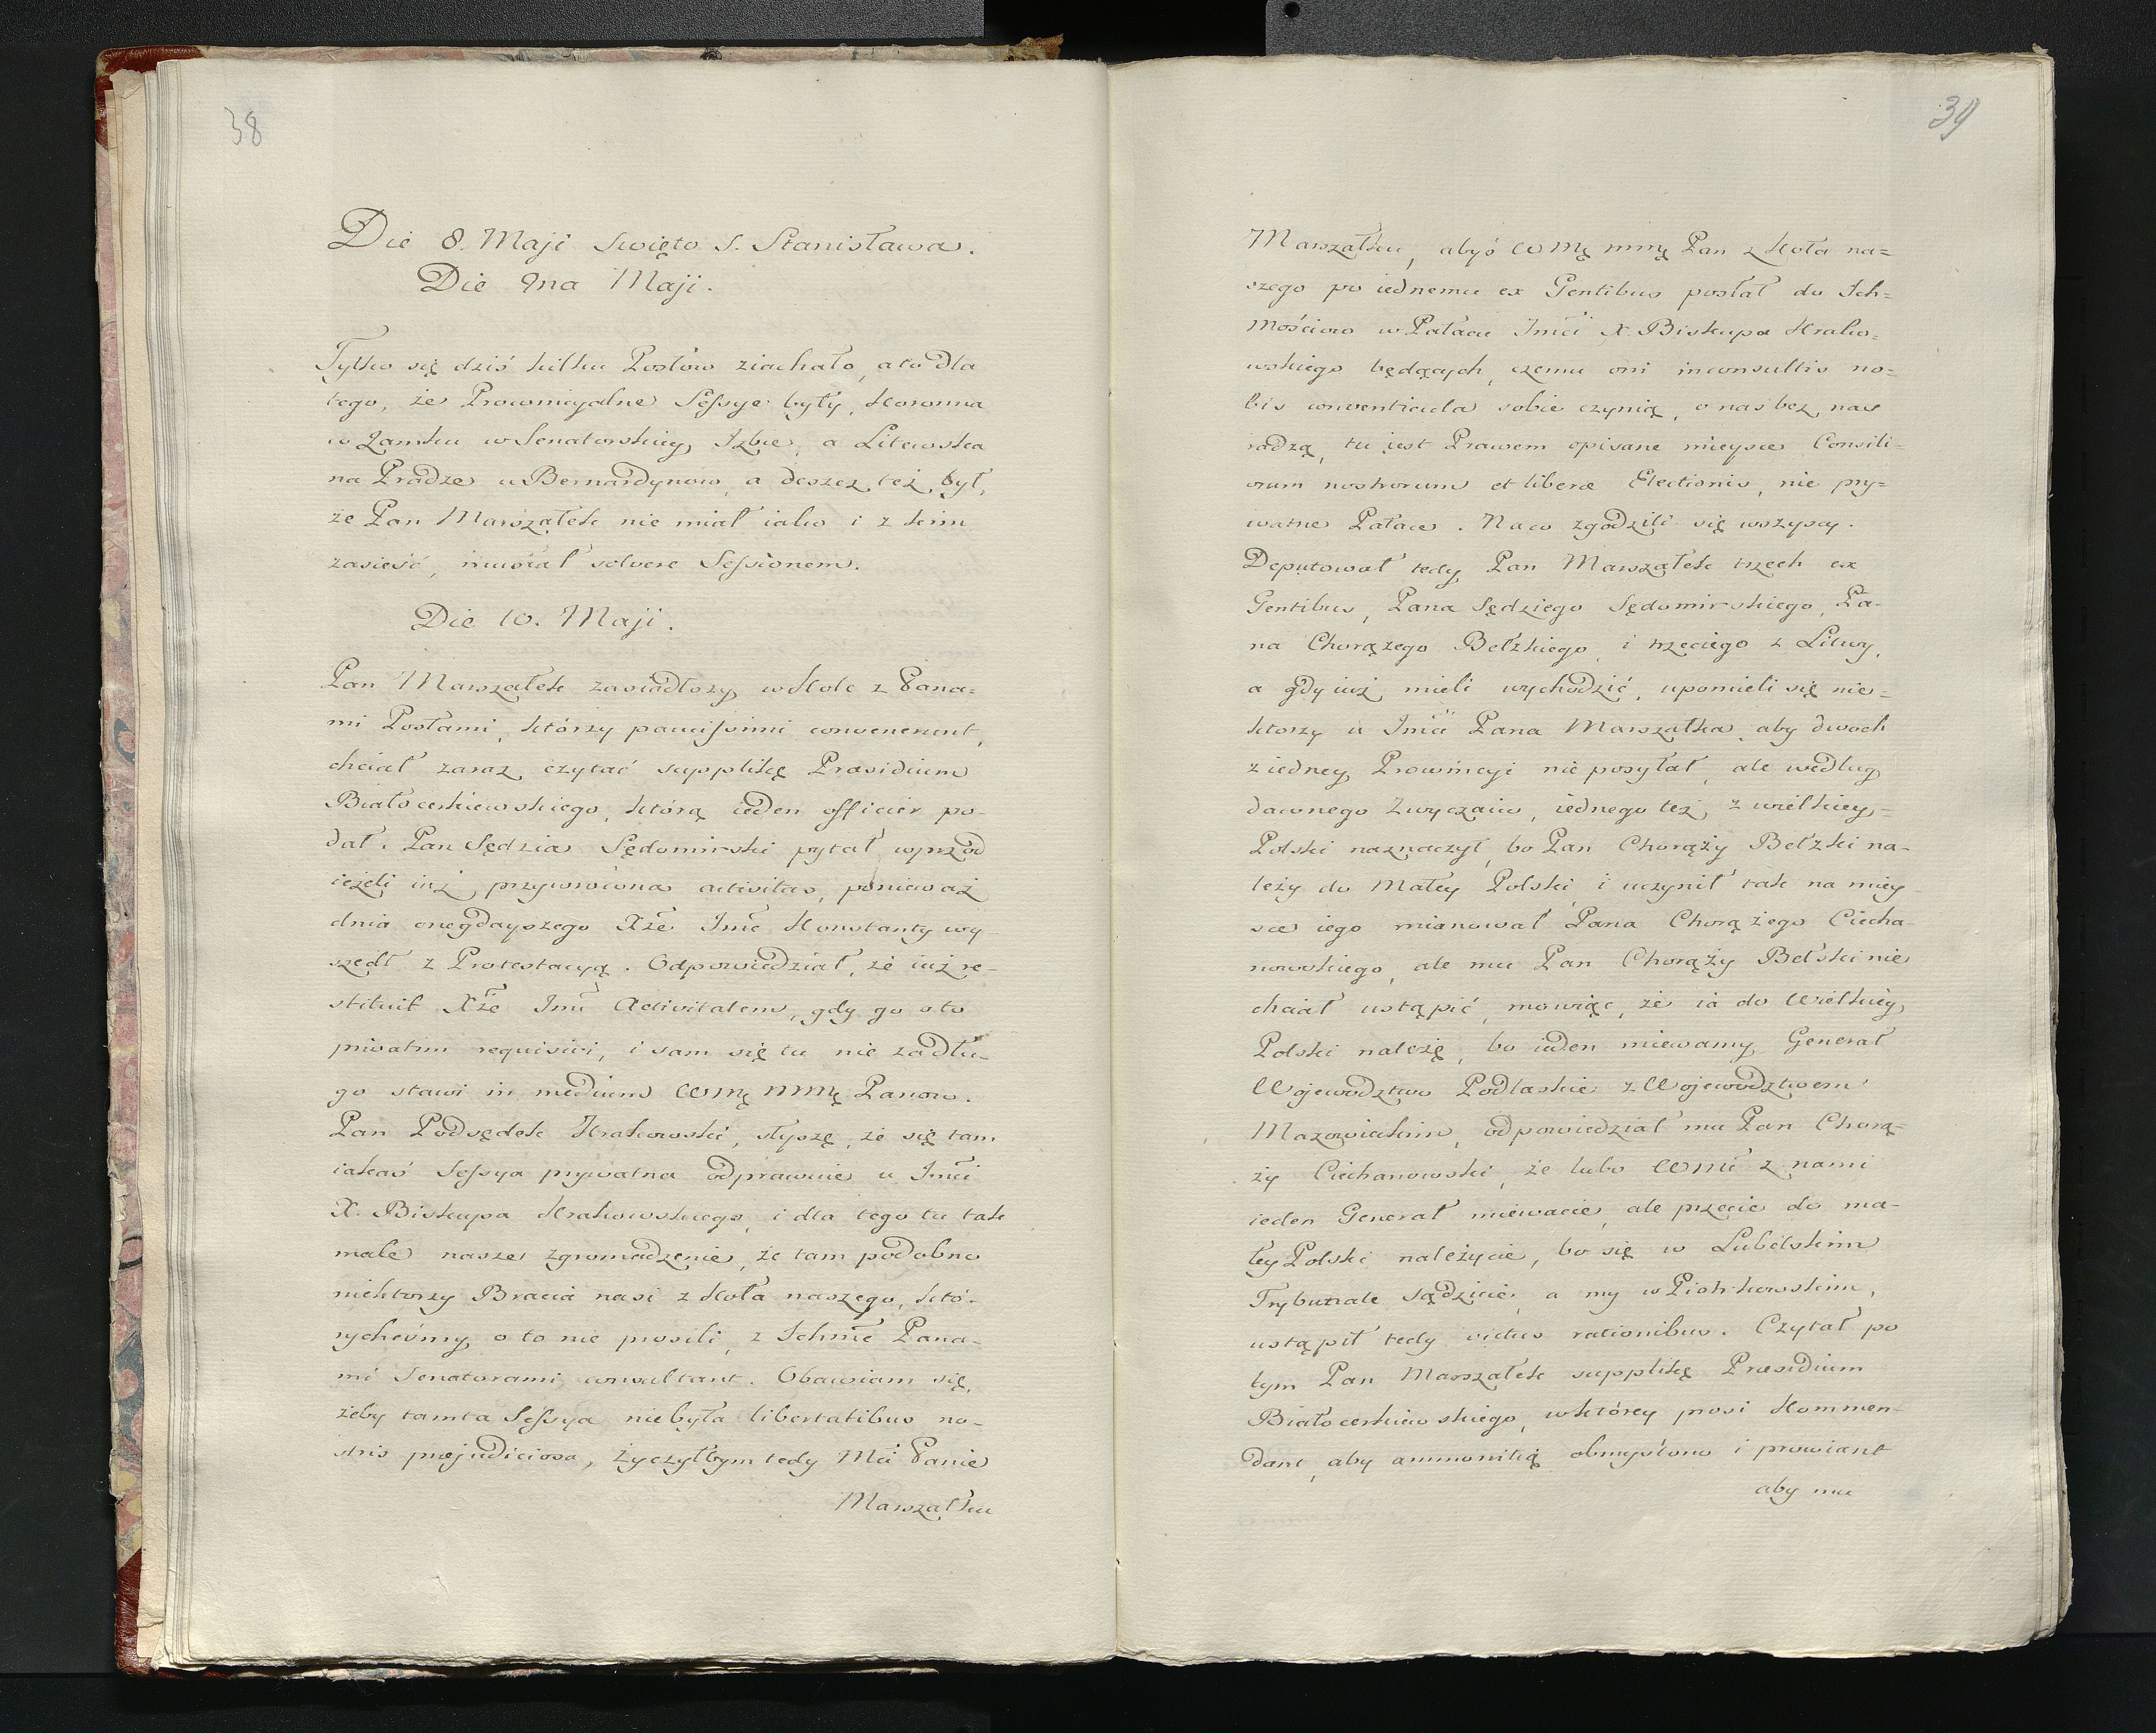 38
Die 8. Maji Swięto S. Stanisława.
Die 9na Maji.
Tylko się dziś kilku Posłów ziachało, a to dla
tego, że Prowincyalne Sessye były, Koronna
w Zamku w Senatorskiey Izbie, a Litewska
na Pradze u Bernardynow, a deszcz też był,
że Pan Marszałek nie miał iako i z kim
zasieść, musiał solvere Sessionem.
Die 10. Maji.
Pan Marszałek zasiadłszy w Kole z Pana-
mi Posłami, którzy paucissimi convenerunt,
chciał zaraz czytać supplikę Præsidium
Białocerkiewskiego, którą ieden officier po-
dał. Pan Sędzia Sędomirski pytał wprzód
ieżeli iuż przywrócona activitas, ponieważ
dnia onegdayszego Xże Imć Konstanty wy-
szedł z Protestacyą. Odpowiedział, że iuż re-
stituit Xże Imć Activitatem, gdy go o to
privatim requisivi, i sam się tu nie zadłu-
go stawi in medium WMę MMę Panow.
Pan Podsędek Krakowski, słyszę, że się tam
iakaś Sessya prywatna odprawuie u Imci
X. Biskupa Krakowskiego, i dla tego tu tak
małe nasze zgromadzenie, że tam podobno
niektorzy Bracia nasi z Koła naszego, któ-
rycheśmy o to nie prosili, z Ichmć Pana-
mi Senatorami consultant. Obawiam się,
żeby tamta Sessya nie była libertatibus no-
stris præjudiciosa, życzyłbym tedy Mci Panie
Marszałku
39
Marszałku, abyś WMę mmę Pan z Koła na=
szego po iednemu ex Gentibus posłał do Ich=
mościow w Pałacu Imci X. Biskupa Krako-
wskiego będących, czemu oni inconsultis no=
bis conventicula sobie czynią, o nas bez nas
radzą, tu iest Prawem opisane mieysce Consili-
orum nostrorum et liberæ Electionis, nie pry=
watne Pałace. Na co zgodzili się wszyscy.
Deputował tedy Pan Marszałek trzech ex
Gentibus, Pana Sędziego Sędomirskiego, Pa-
na Chorążego Bełzkiego, i trzeciego z Litwy,
a gdy iuż mieli wychodzić, upomnieli się nie=
ktorzy u Imci Pana Marszałka, aby dwoch
z iedney Prowincyi nie posyłał, ale według
dawnego Zwyczaiu, iednego też z wielkiey=
Polski naznaczył, bo Pan Chorąży Bełzki na-
leży do Małey Polski, i uczynił tak na miey-
sce iego mianował Pana Chorążego Ciecha-
nowskiego, ale mu Pan Chorąży Bełski nie
chciał ustąpić, mowiąc, że ia do Wielkiey
Polski należę, bo ieden miewamy Generał
Wojewodztwo Podlaskie z Wojewodztwem
Mazowieckim, odpowiedział mu Pan Chorą-
ży Ciechanowski, że lubo WMć z nami
ieden Generał miewacie, ale przecie do ma-
łey Polski należycie, bo się w Lubelskim
Trybunale sądzicie, a my w Piotrkowskim,
ustąpił tedy victus rationibus. Czytał po
tym Pan Marszałek supplikę Præsidium
Białocerkiewskiego, w którey prosi Kommen-
dant, aby ammonitią obmyślono i prowiant
aby mu